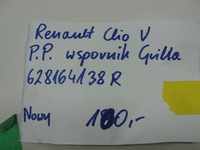 Renault Clio V
P.P. wspornik Grilla
628164138R
Nowy 180,-